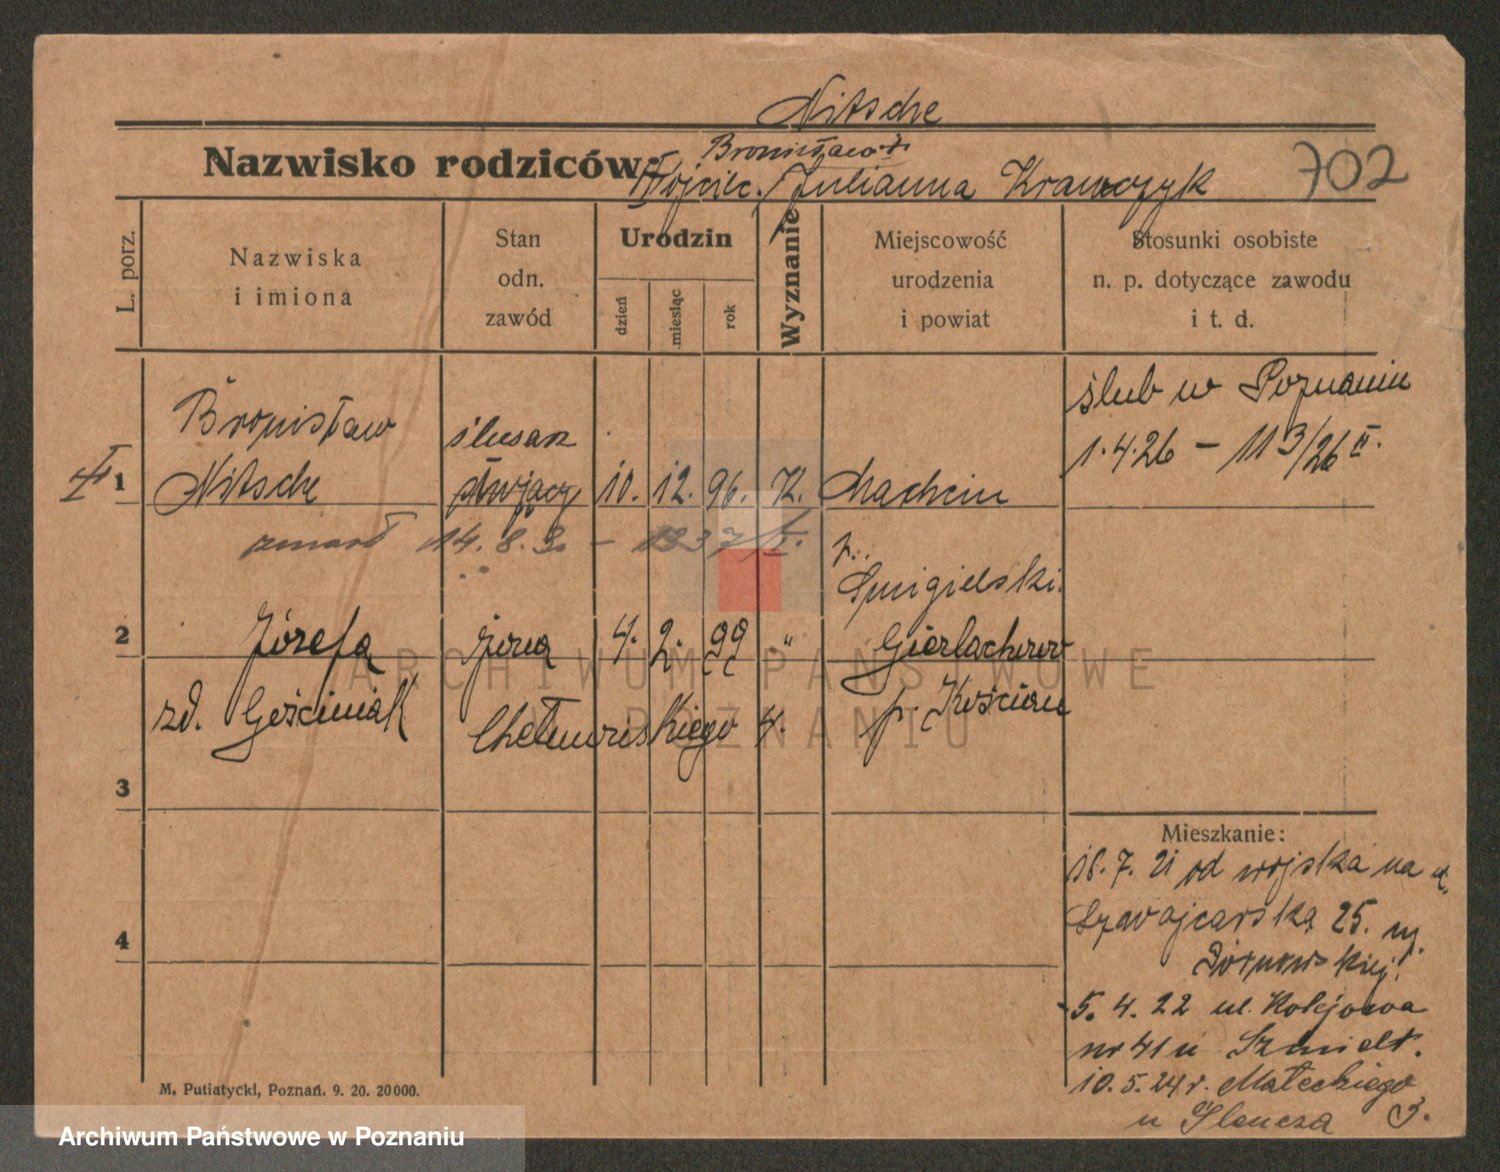 Nitsche
Bronisława
Nazwisko rodziców: Wojciec. / Julianna Krawczyk
702
L. porz.
Nazwiska
i imiona
Stan
odn.
zawód
Urodzin
dzień
miesiąc
rok
Wyznanie
Miejscowość
urodzenia
i powiat
Stosunki osobiste
n. p. dotyczące zawodu
i t. d.
ślub w Poznaniu
1.4.26 – 11 3/26 II.
1
Bronisław ślusarz
Nitsche 10. 12. 96. K.
zmarł 14. 8. 3
p.
Śmigielski.
2
Józefa żona 4. 2. 99 "
zd. Gościniak p. Kościan
4.
3
4
Mieszkanie:
18. 7. 21 od wojska na ul.
Szwajcarską 25.
5. 4. 22 ul. Kolejowa
nr 41 u Szmidt.
10. 5. 24 r. Małeckiego
u 3.
M. Putiatycki, Poznań. 9. 20. 20000.
ARCHIWUM PAŃSTWOWE
POZNANIU
Archiwum Państwowe w Poznaniu